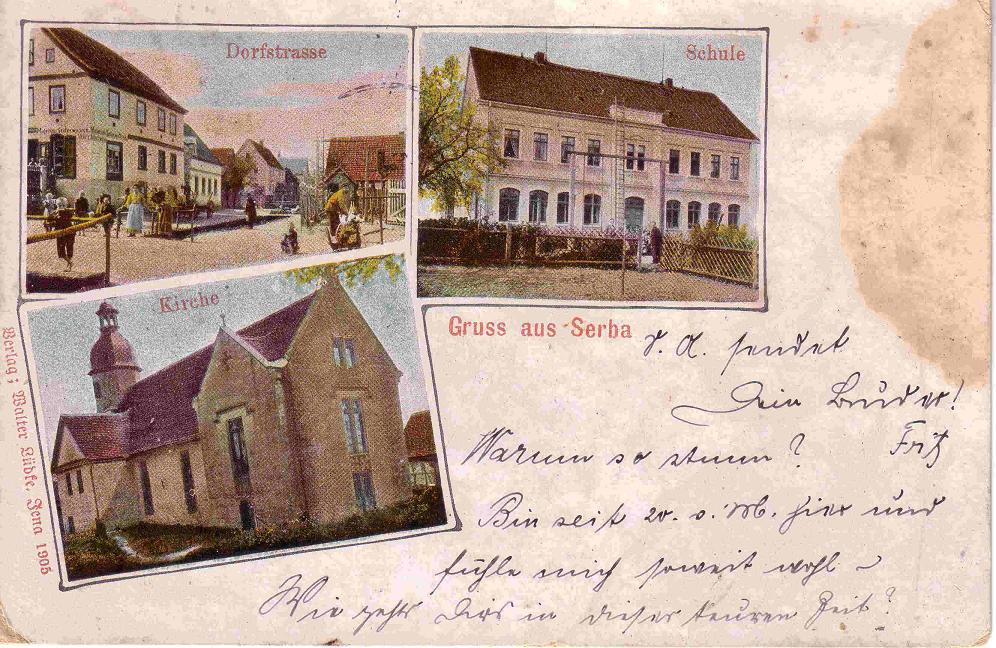 Dorfstrasse
Schule
Kirche
Gruss aus Serba
S. A. sendet
Dein Bruder!
Fritz
Warum so stumm?
Bin seit 20. v. M. hier und
fühle mich soweit wohl –
Wie gehts Dir in dieser teuren Zeit?
Verlag: Walter Lübke, Jena 1905